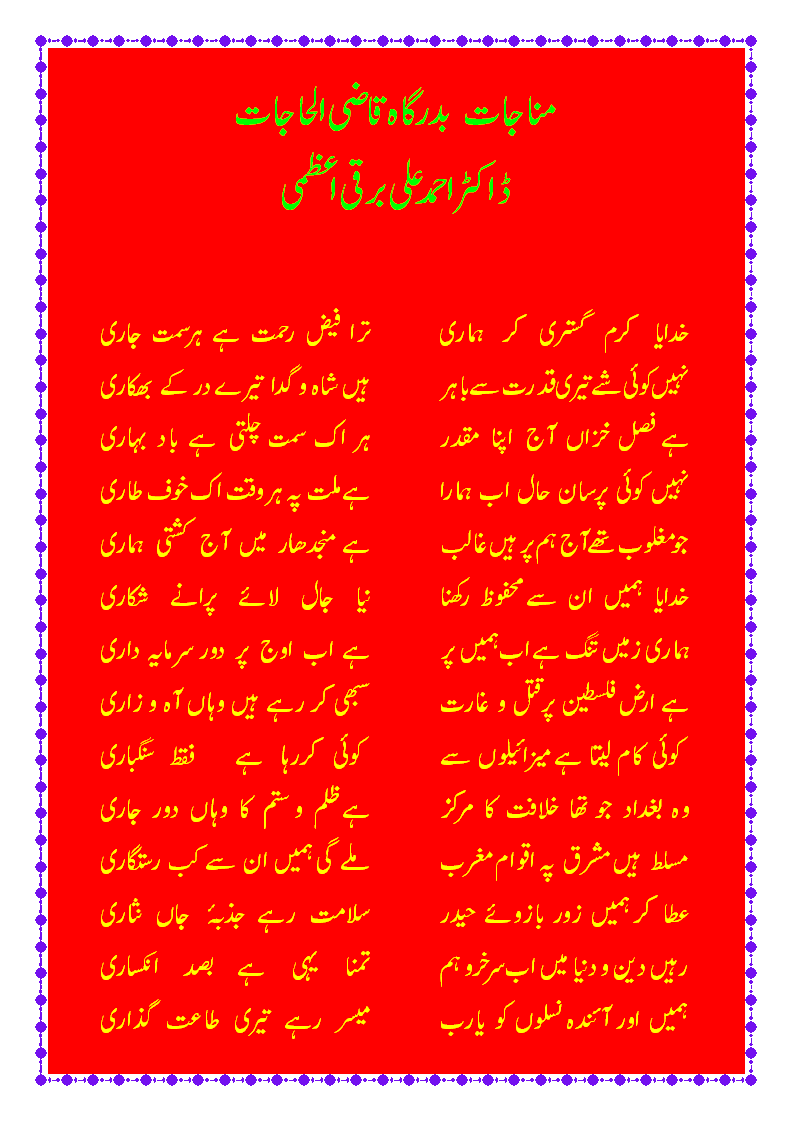 مناجات بدرگاہ قاضی الحاجات
ڈاکٹر احمد علی برقی اعظمی
خدایا کرم گستری کر ہماری ترا فیض رحمت ہے ہر سمت جاری
نہیں کوئی شے تیری قدرت سے باہر ہیں شاہ و گدا تیرے در کے بھکاری
ہے فصل خزاں آج اپنا مقدر ہر اک سمت چلتی ہے باد بہاری
نہیں کوئی پرسان حال اب ہمارا ہے ملت پہ ہر وقت اک خوف طاری
جو مغلوب تھے آج ہم پر ہیں غالب ہے منجدھار میں آج کشتی ہماری
خدایا ہمیں ان سے محفوظ رکھنا نیا جال لائے پرانے شکاری
ہماری زمیں تنگ ہے اب ہمیں پر ہے اب اوج پر دور سرمایہ داری
ہے ارض فلسطین پر قتل و غارت سبھی کر رہے ہیں وہاں آہ و زاری
کوئی کام لیتا ہے میزائیلوں سے کوئی کررہا ہے فقط سنگباری
وہ بغداد جو تھا خلافت کا مرکز ہے ظلم و ستم کا وہاں دور جاری
مسلط ہیں مشرق پہ اقوام مغرب ملے گی ہمیں ان سے کب رستگاری
عطا کر ہمیں زور بازوئے حیدر سلامت رہے جذبۂ جاں نثاری
رہیں دین و دنیا میں اب سرخرو ہم تمنا یہی ہے بصد انکساری
ہمیں اور آئندہ نسلوں کو یارب میسر رہے تیری طاعت گذاری